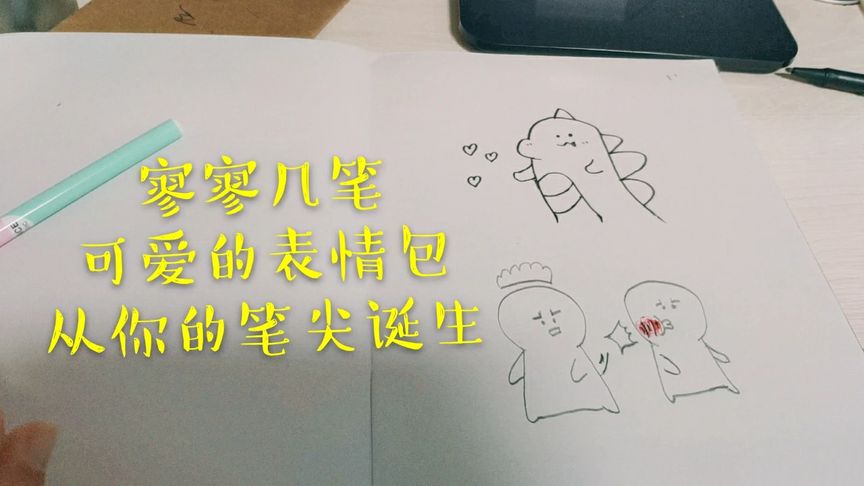 寥寥几笔
可爱的表情包
从你的笔尖诞生